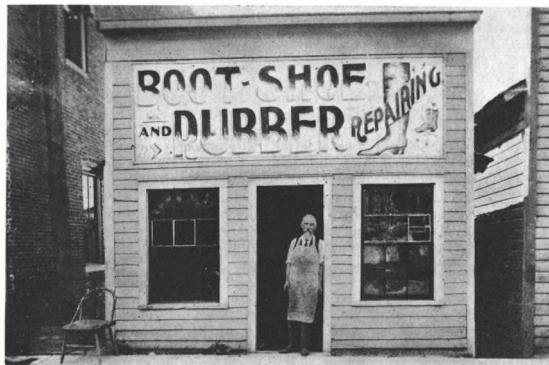 BOOT-SHOE
AND RUBBER
REPAIRING